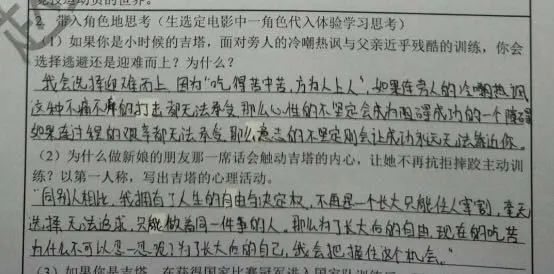 竞技运动员的世界。
2. 带入角色地思考（生选定电影中一角色代入体验学习思考）
（1）如果你是小时候的吉塔，面对旁人的冷嘲热讽与父亲近乎残酷的训练，你会
选择逃避还是迎难而上？为什么？
我会选择迎难而上，因为“吃得苦中苦，方为人上人”，如果连旁人的冷嘲热讽
这种不痛不痒的打击都无法承受，那么心性的不坚定会成为阻碍成功的一个障碍
如果连过程的艰辛都无法承受，那么意志的不坚定则会让成功永远无法靠近你。
（2）为什么做新娘的朋友那一席话会触动吉塔的内心，让她不再抗拒摔跤主动训
练？以第一人称，写出吉塔的心理活动。
“同别人相比，我拥有了人生的自由与决定权，不再是一个长大只能任人宰割，
选择无法追求，只能做着同一件事的人。那么为了长大向的自由，现在的吃苦
为什么不可以忍一忍呢？为了长大向的自己，我会把握住这个机会。”
（3）如果你是吉塔，在获得国家比赛冠军进入国家队训练